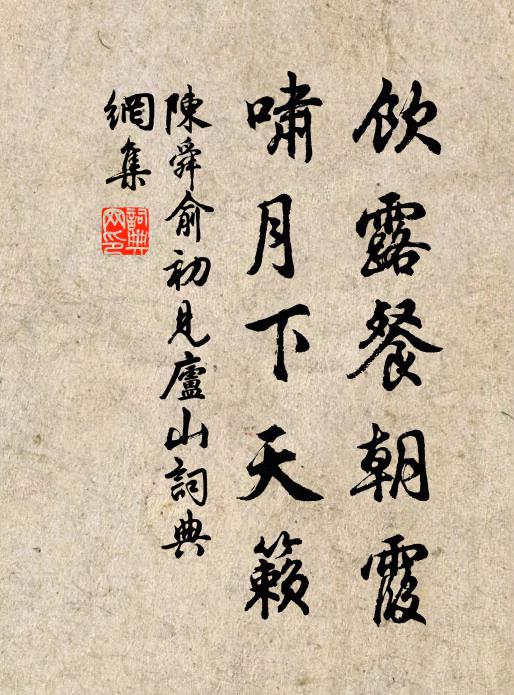 飲露餐朝霞
嘯月下天籟
陳舜俞初見廬山詞典
網集
詞典
网印